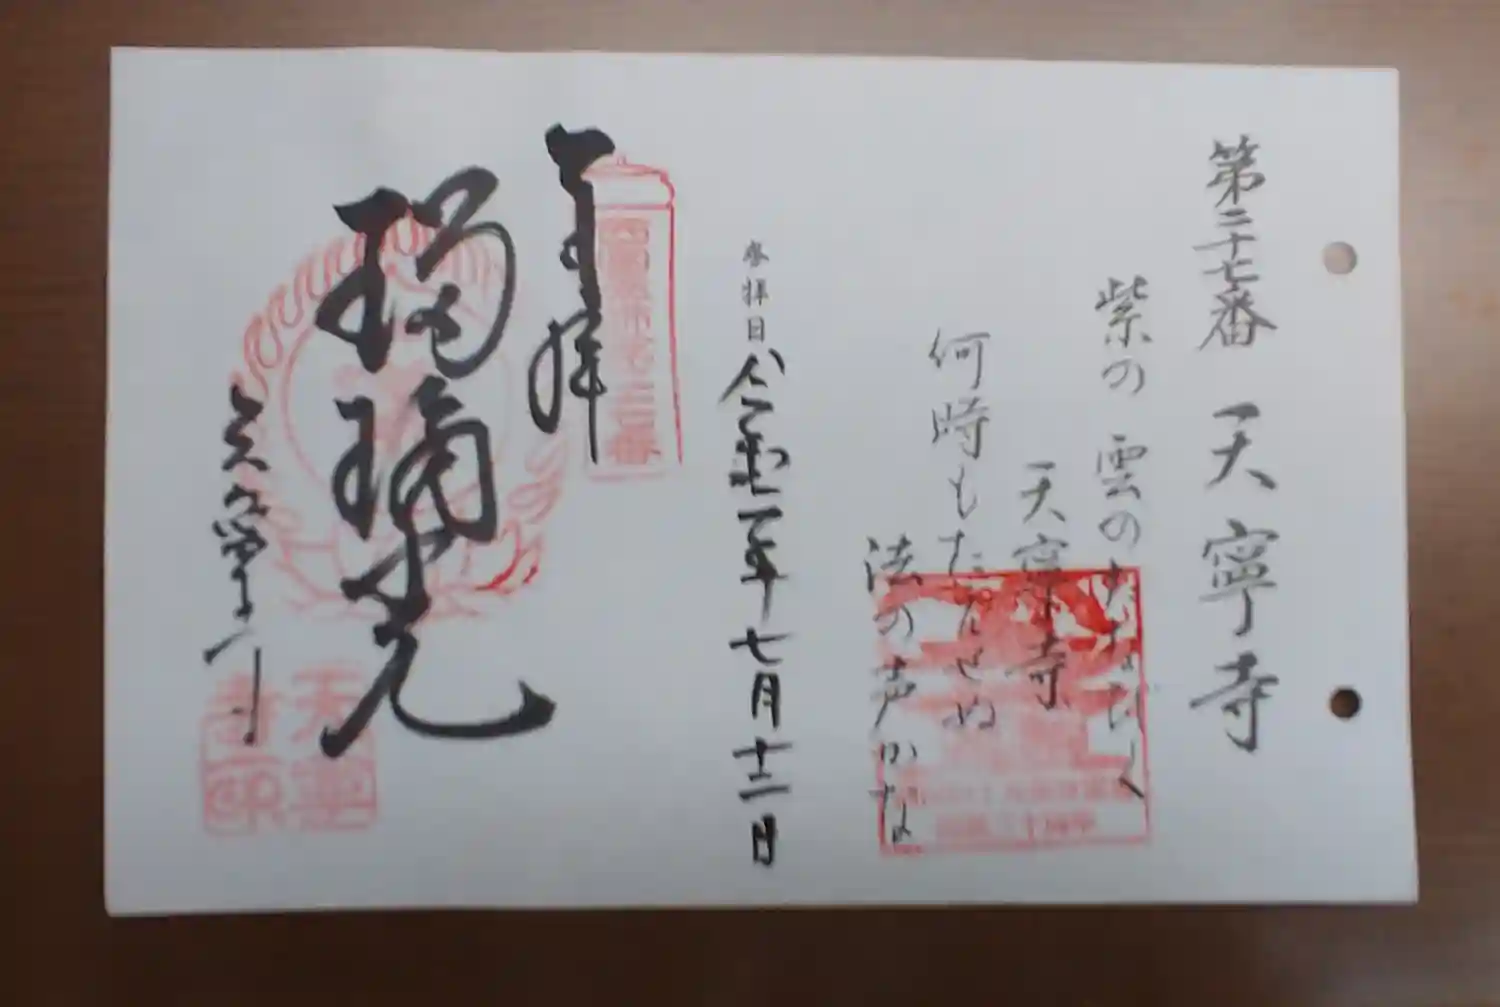 第二十七番 天寧寺
紫の 雲のたなびく
天寧寺
何時もたえせぬ
法の声かな
参拝日
令和二年七月十二日
奉拝
瑠璃光
天寧寺
天寧
寺印